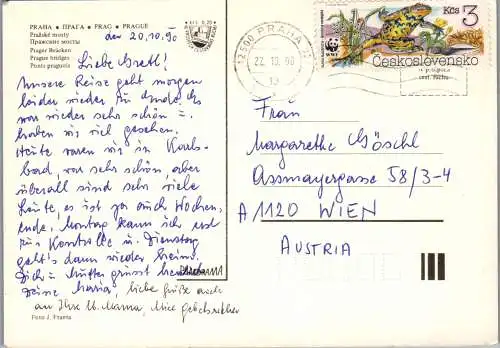 PRAHA • ПРАГА • PRAG • PRAGUE
Pražské mosty
Пражские мосты
Prager Brücken
Prague bridges
Ponts praguois
den 20.10.90
Liebe Gretl!
Unsere Reise geht morgen
leider wieder zu Ende. Es
war wieder sehr schön u.
haben wir viel gesehen.
Heute waren wir in Karls-
bad, war sehr schön, aber
überall sind sehr viele
Leute, es ist ja auch Wochen-
ende, Montag kann ich erst
zur Kontrolle u. Dienstag
geht's dann wieder heim.
Dich u. Mutter grüsst
Deine Maria, liebe Grüße auch
an Ihre lb. Mama,
Foto J. Franta
KČS 0,70
PRAHA
22.10.90
Kčs 3
WWF
Československo
Frau
Margarethe Göschl
Assmayergasse 58/3-4
A 1120 WIEN
AUSTRIA